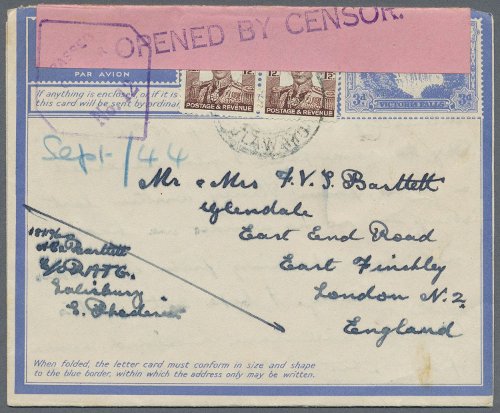 OPENED BY CENSOR.
PASSED
PAR AVION
If anything is enclosed or if it is
this card will be sent by ordinary
POSTAGE & REVENUE
POSTAGE & REVENUE
3d VICTORIA FALLS 3d
Sept/44
Mr & Mrs F. V. S. Bartlett
Glendale
East End Road
East Finchley
London N.2
England
Bartlett
Salisbury
S. Rhodesia
When folded, the letter card must conform in size and shape
to the blue border, within which the address only may be written.